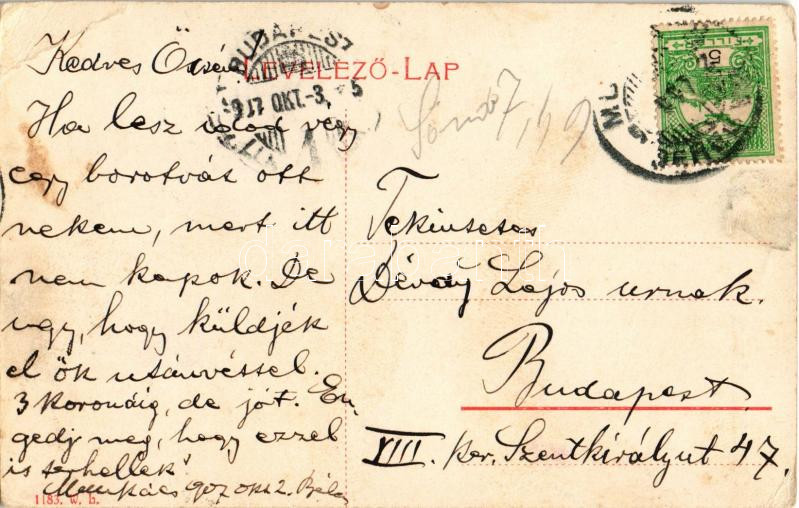 LEVELEZŐ-LAP
BUDAPEST
907 OKT.-3.
Kedves Öcsém!
Ha lesz időd végy
egy borotvát ott
nekem, mert itt
nem kapok. De
úgy, hogy küldjék
el ők utánvéttel.
3 Koronáig, de jót. En-
gedj meg, hogy ezzel
is terhellek!
Munkács 907 okt 2. Béla
Tekintetes
Dévay Lajos urnak.
Budapest.
VIII. ker. Szentkirályi ut 47.
1183. w. b.